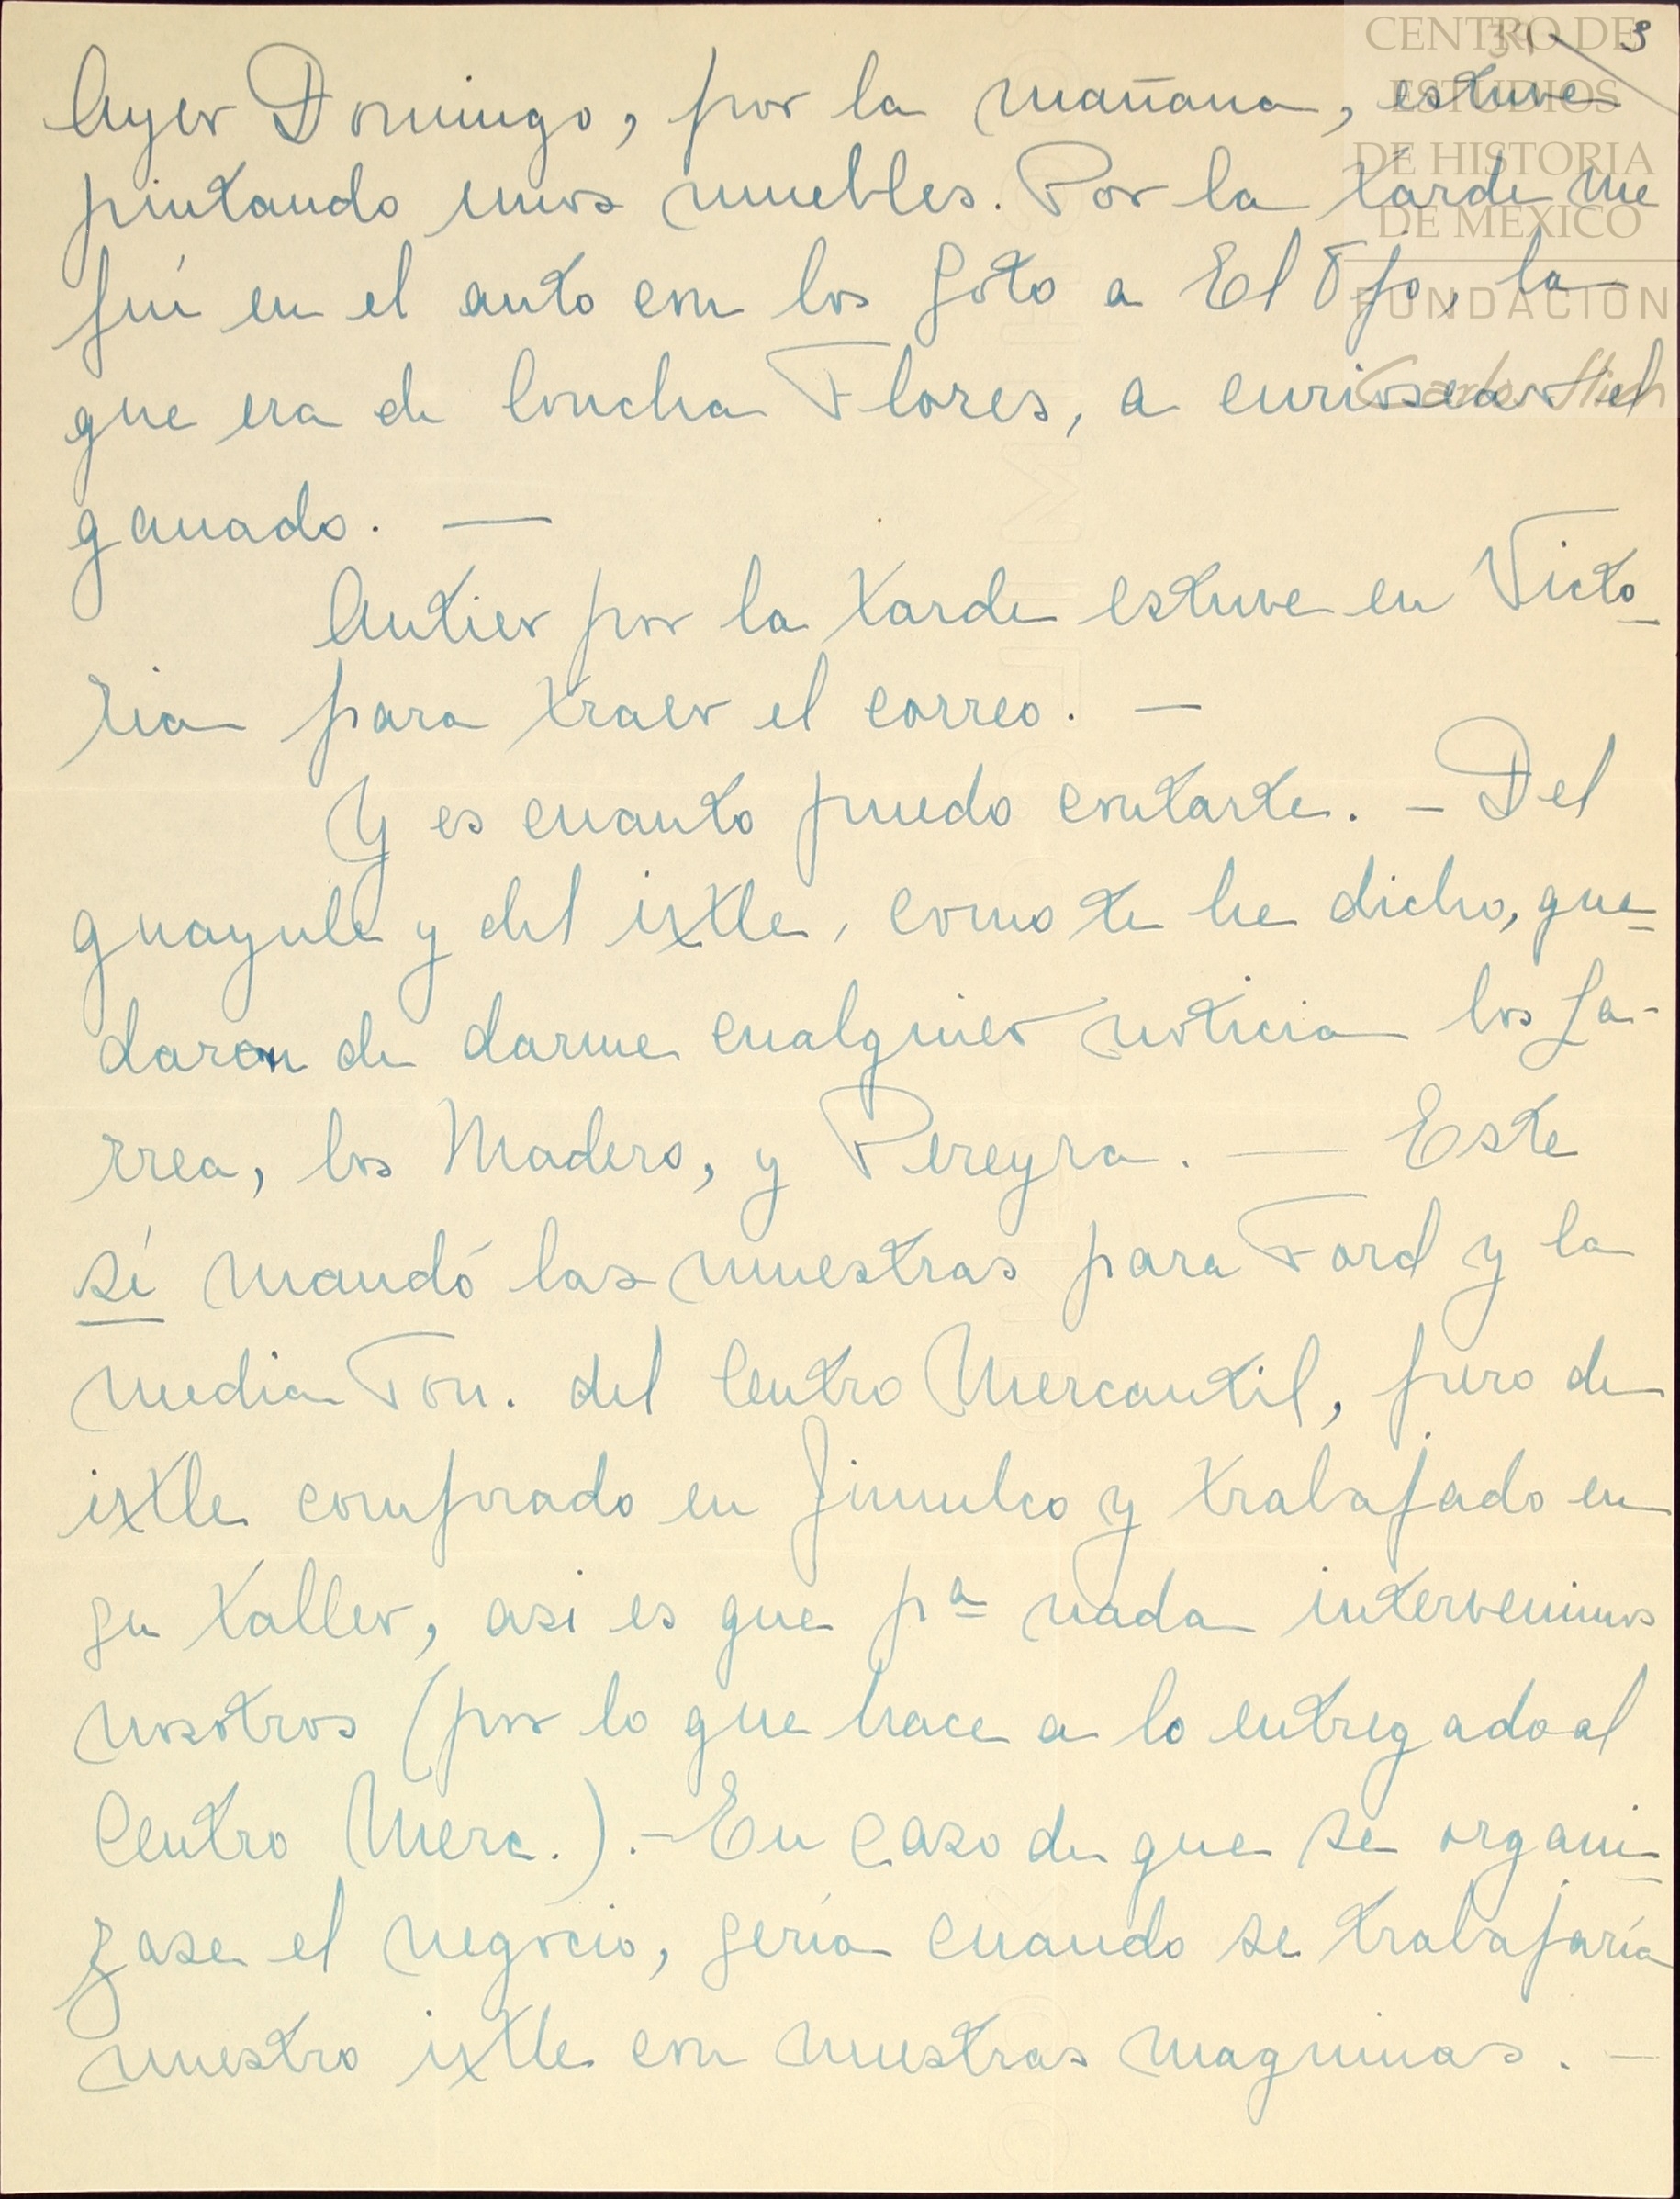 CENTRO DE
ESTUDIOS
DE HISTORIA
DE MEXICO
FUNDACION
Carlos Slim
3
Ayer Domingo, por la mañana, estuve
pintando unos muebles. Por la tarde me
fuí en el auto con los Soto a El Ojo, la
que era de Concha Flores, a curiosear el
ganado. —
Antier por la tarde estuve en Victo-
ria para traer el correo. —
Y es cuanto puedo contarte. — Del
guayule y del ixtle, como te he dicho, que-
daron de darme cualquier noticia los La-
rrea, los Madero, y Pereyra. — Este
sí mandó las muestras para Ford y la
media Ton. del Centro Mercantil, pero de
ixtle comprado en Jimulco y trabajado en
su taller, asi es que pª nada intervenimos
nosotros (por lo que hace a lo entregado al
Centro Merc.). — En caso de que se organi-
zase el negocio, sería cuando se trabajaría
nuestro ixtle con nuestras maquinas. —